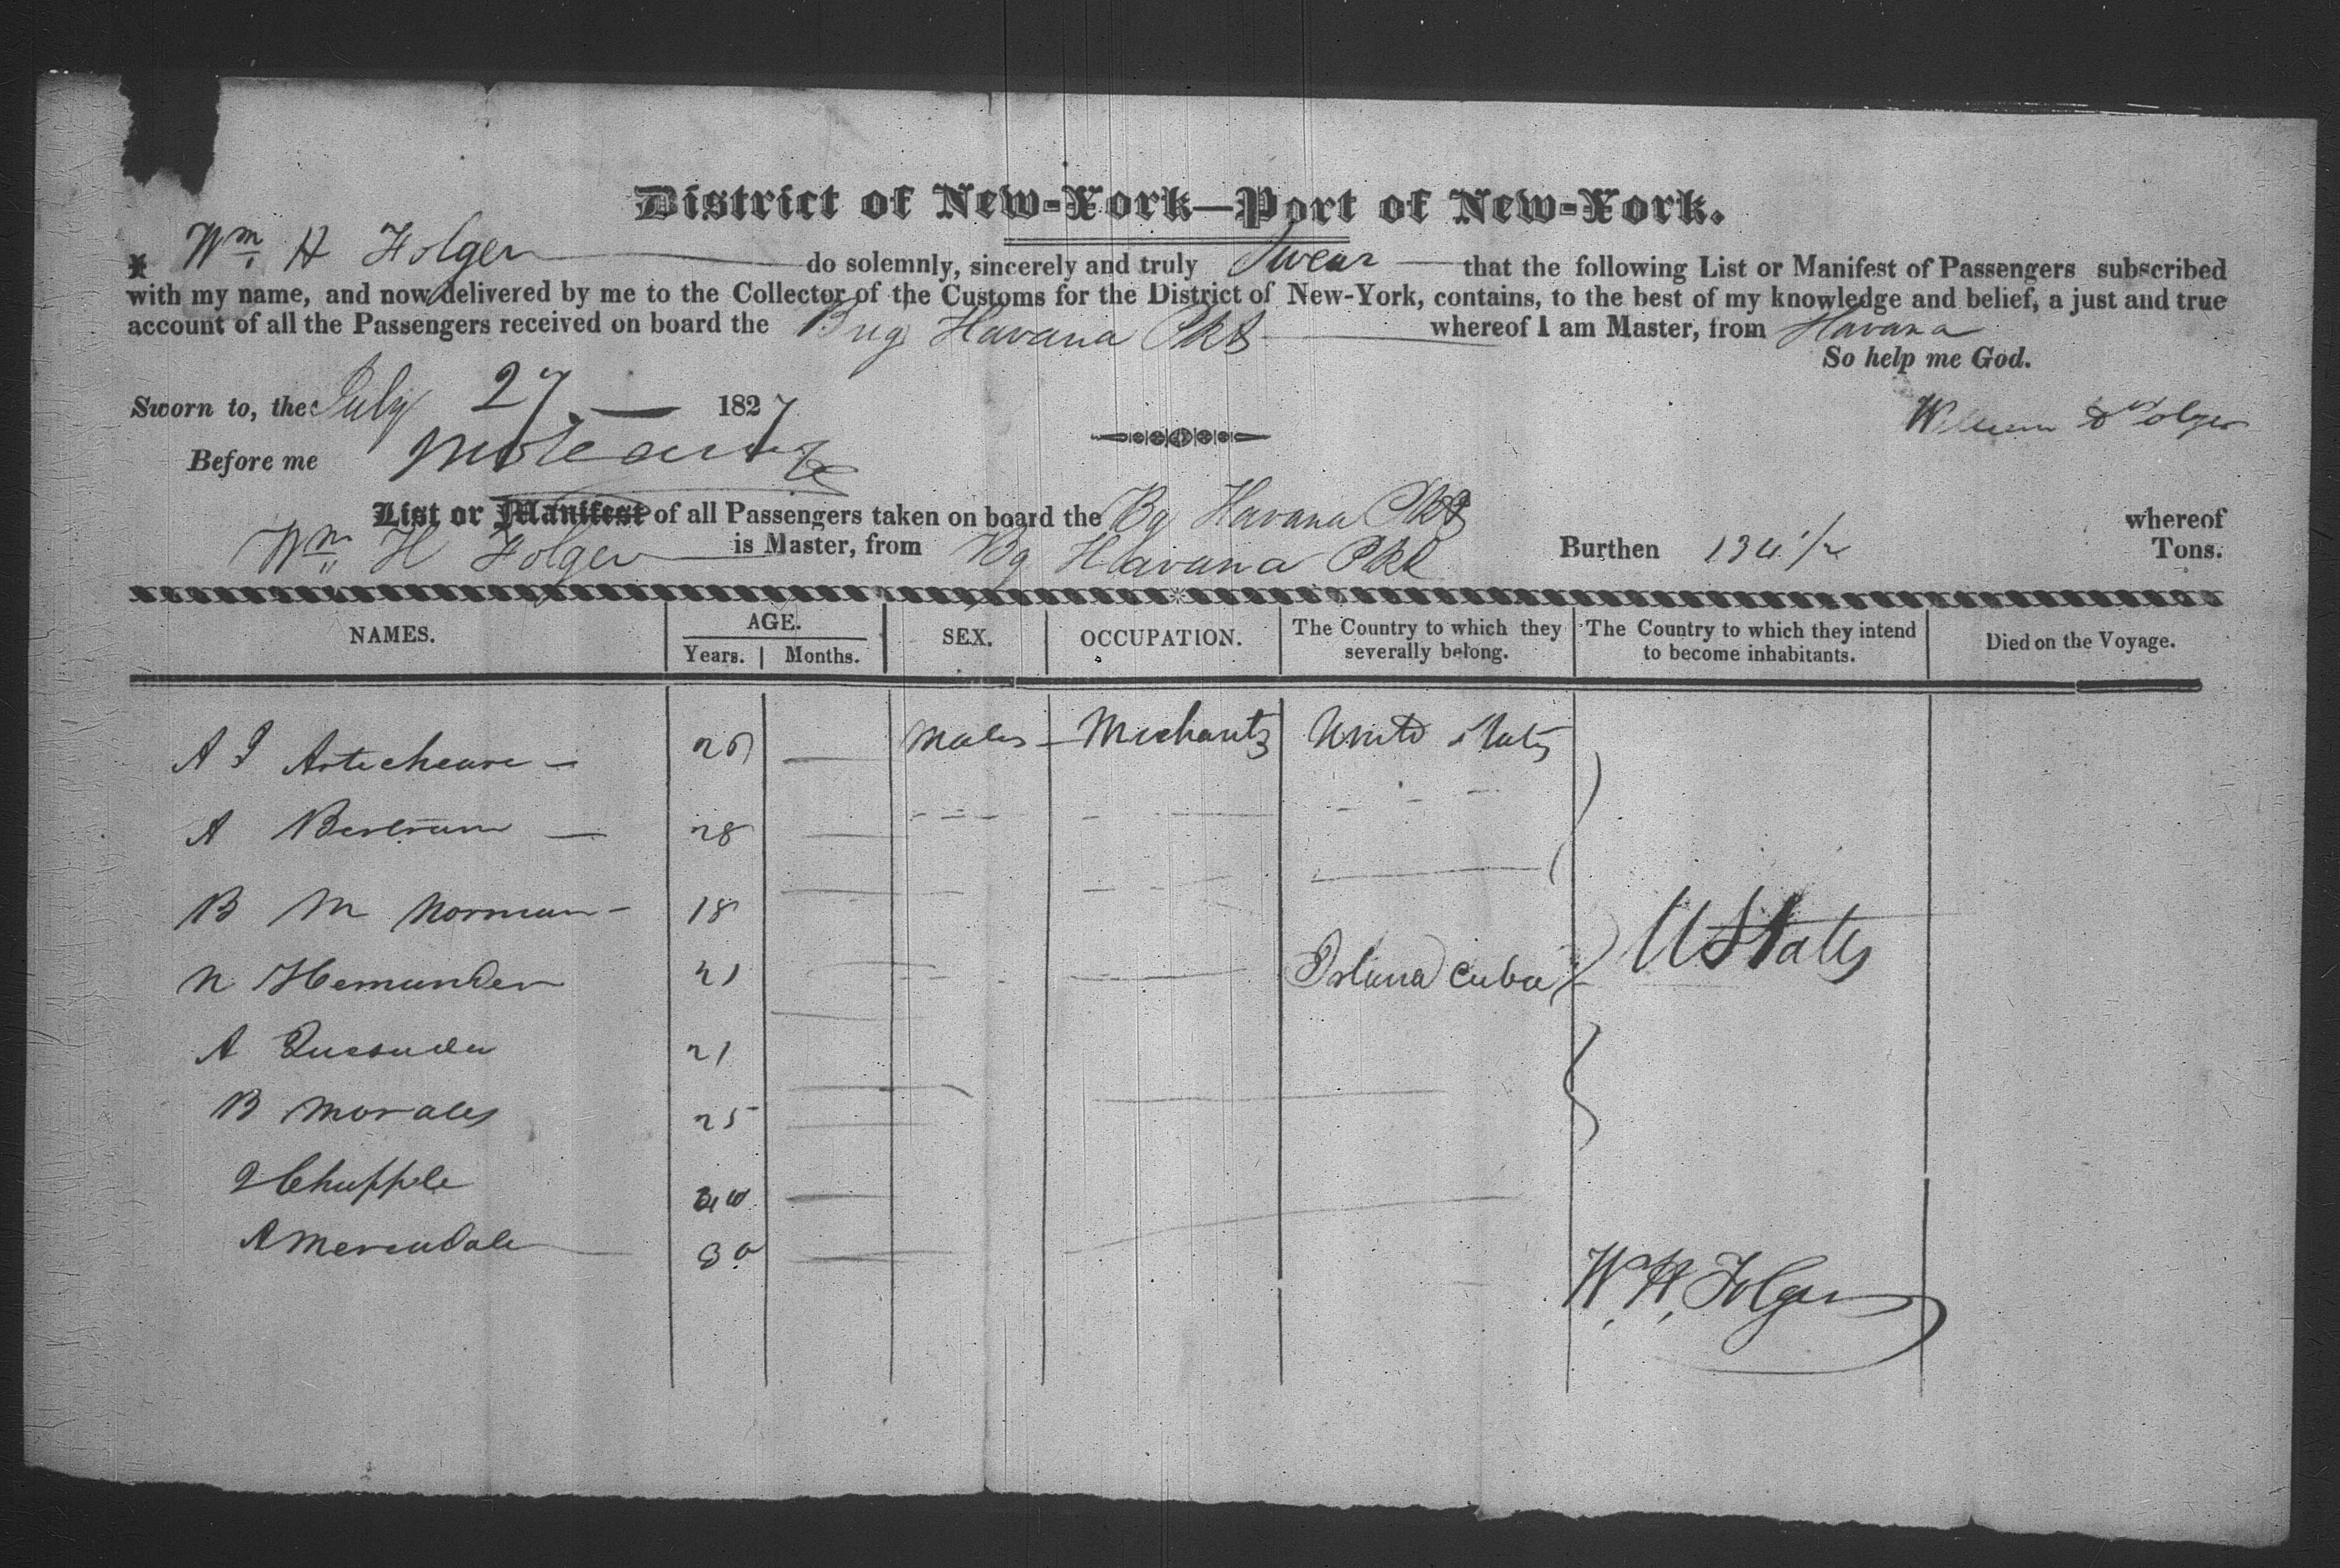 District of New-York—Port of New-York.
I Wm. H Folger do solemnly, sincerely and truly Swear that the following List or Manifest of Passengers subscribed
with my name, and now delivered by me to the Collector of the Customs for the District of New-York, contains, to the best of my knowledge and belief, a just and true
account of all the Passengers received on board the Brig Havana Pkt whereof I am Master, from Havana
So help me God.
Sworn to, the July 27 1827
William H Folger
Before me
List or Manifest of all Passengers taken on board the Bg Havana Pkt whereof
Wm. H Folger is Master, from Bg Havana Pkt Burthen 134 1/2 Tons.
NAMES. AGE. SEX. OCCUPATION. The Country to which they severally belong. The Country to which they intend to become inhabitants. Died on the Voyage.
Years. Months.
A 26 Males Merchants United States
A Bertram 28
B M Norman 18
N Hernander 21 Island Cuba U States
A Quesada 21
B Morales 25
Chapple
A 30
W. H. Folger